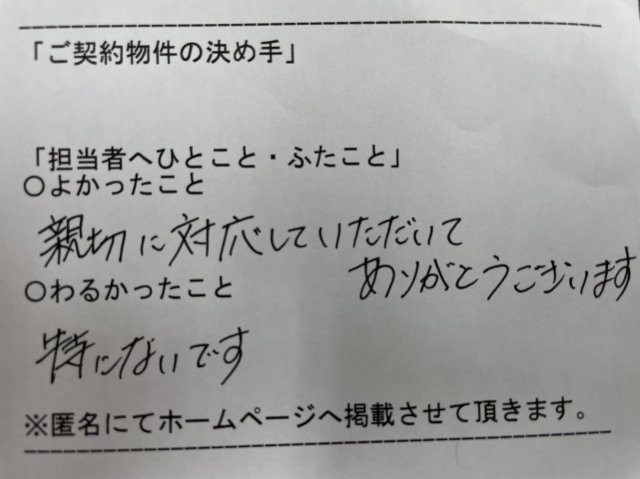 「ご契約物件の決め手」
「担当者へひとこと・ふたこと」
○よかったこと
親切に対応していただいて
ありがとうございます
○わるかったこと
特にないです
※匿名にてホームページへ掲載させて頂きます。